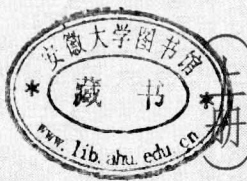 安徽大学图书馆
藏书
www.lib.ahu.edu.cn
上册